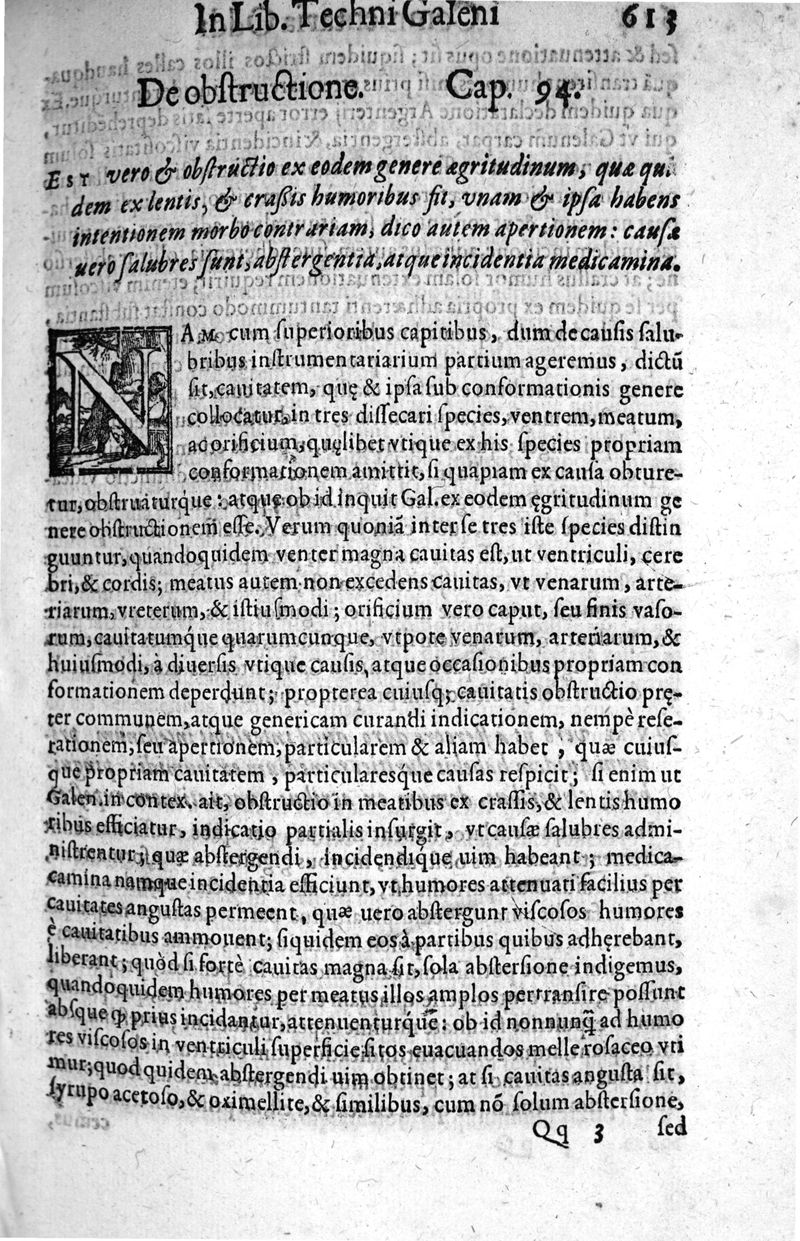 In Lib. Techni Galeni 613
De obſtructione. Cap. 94.
Est vero & obſtructio ex eodem genere ægritudinum, quæ qui
dem ex lentis, & craſsis humoribus fit, vnam & ipſa habens
intentionem morbo contrariam, dico autem apertionem: cauſæ
uero ſalubres ſunt, abſtergentia, atque incidentia medicamina.
NAM cum ſuperioribus capitibus, dum de cauſis ſalu-
bribus inſtrumentariarium partium ageremus, dictũ
ſit, cauitatem, quę & ipſa ſub conformationis genere
collocatur, in tres diſſecari ſpecies, ventrem, meatum,
ac orificium, quęlibet vtique ex his ſpecies propriam
conformationem amittit, ſi quapiam ex cauſa obture-
tur, obſtruaturque: atque ob id inquit Gal. ex eodem ęgritudinum ge
nere obſtructionem eſſe. Verum quoniã inter ſe tres iſte ſpecies diſtin
guuntur, quandoquidem venter magna cauitas eſt, ut ventriculi, cere
bri, & cordis; meatus autem non excedens cauitas, vt venarum, arte-
riarum, vreterum, & iſtiuſmodi; orificium vero caput, ſeu finis vaſo-
rum, cauitatumq́ue quarumcunque, vtpote venarum, arteriarum, &
huiuſmodi, à diuerſis vtique cauſis, atque occaſionibus propriam con
formationem deperdunt; propterea cuiuſq; cauitatis obſtructio prę-
ter communem, atque genericam curandi indicationem, nempè reſe-
rationem, ſeu apertionem, particularem & aliam habet, quæ cuiuſ-
que propriam cauitatem, particulareſq́ue cauſas reſpicit; ſi enim ut
Galen. in contex. ait, obſtructio in meatibus ex craſſis, & lentis humo
ribus efficiatur, indicatio partialis inſurgit, vt cauſæ ſalubres admi-
niſtrentur; quæ abſtergendi, incidendiq́ue uim habeant; medica-
camina namque incidentia efficiunt, vt humores attenuati facilius per
cauitates anguſtas permeent, quæ uero abſtergunt viſcoſos humores
è cauitatibus ammouent; ſiquidem eos à partibus quibus adhęrebant,
liberant; quòd ſi fortè cauitas magna ſit, ſola abſterſione indigemus,
quandoquidem humores per meatus illos amplos pertranſire poſſunt
absque ꝙ prius incidantur, attenuenturq́ue: ob id nonnunq̃ ad humo
res viſcoſos in ventriculi ſuperficie ſitos euacuandos melle roſaceo vti
mur; quod quidem abſtergendi uim obtinet; at ſi cauitas anguſta ſit,
ſyrupo acetoſo, & oximellite, & ſimilibus, cum nõ ſolum abſterſione,
Qq 3 ſed